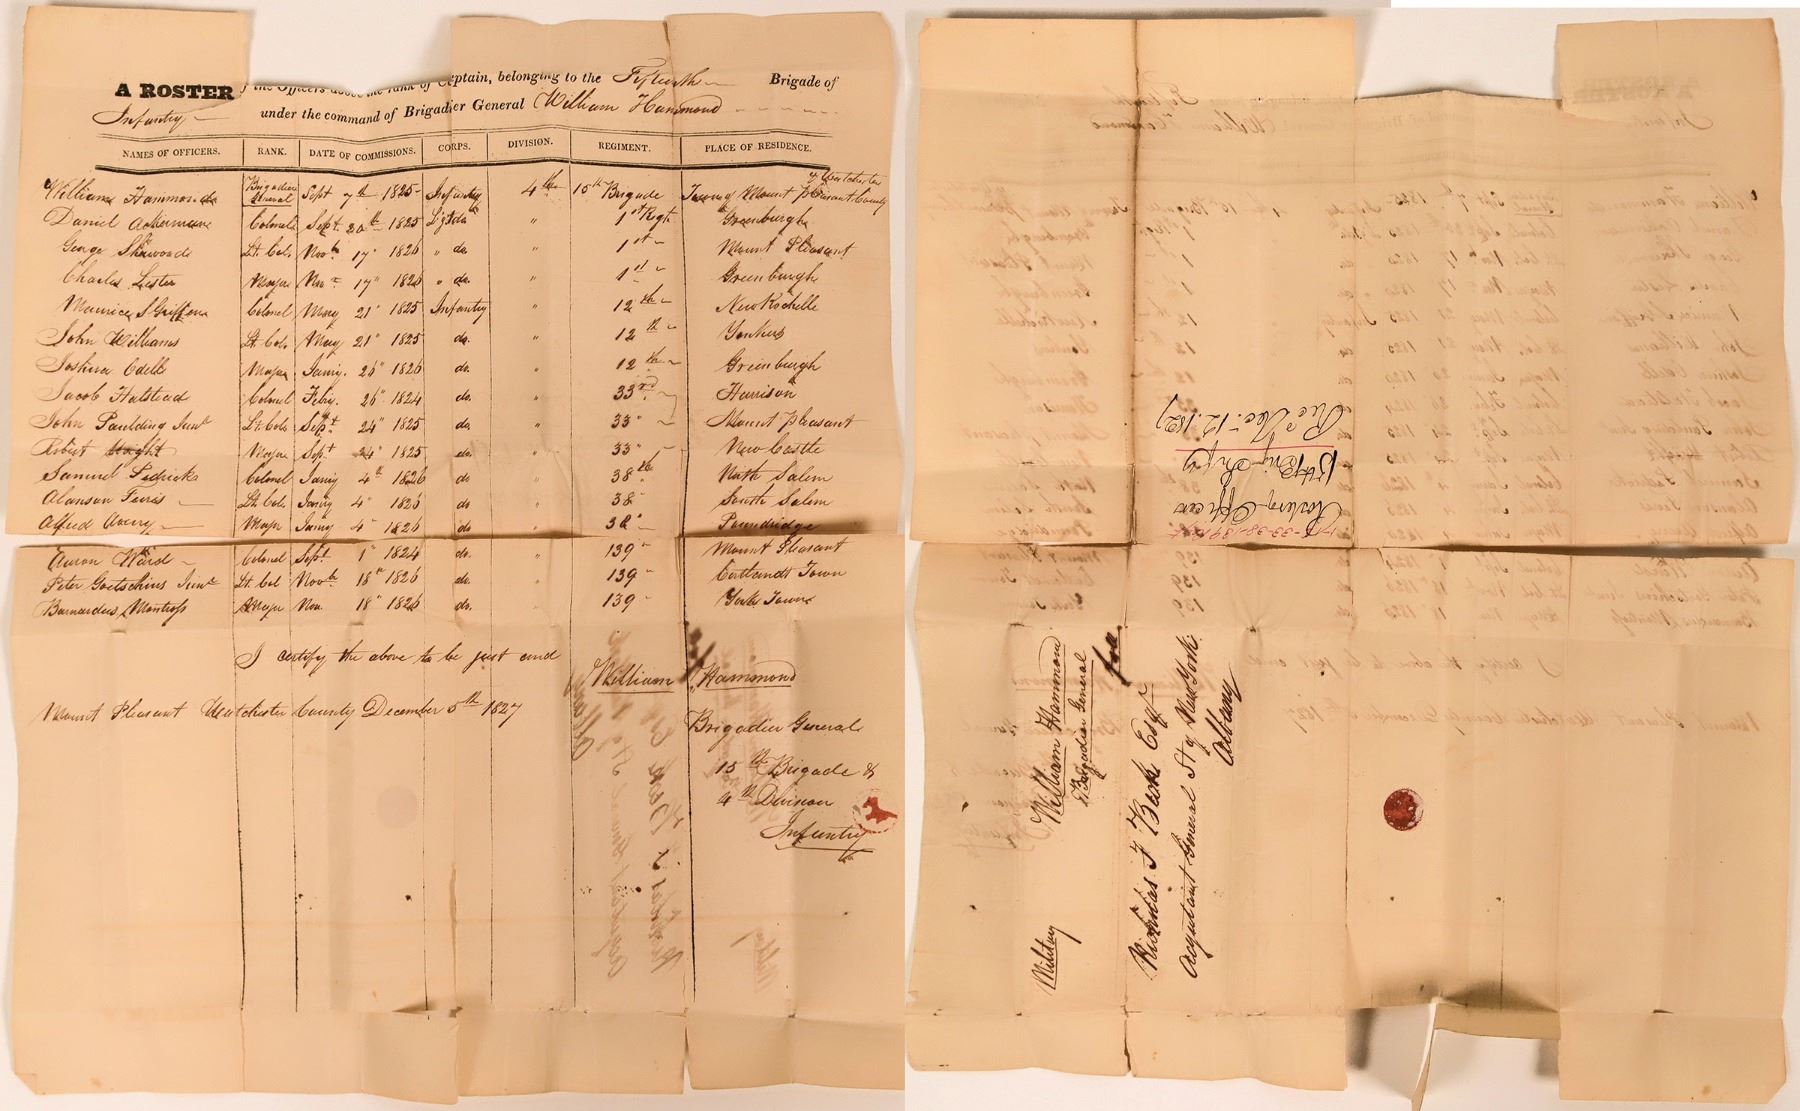 A ROSTER of the Officers above the rank of Captain, belonging to the Fifteenth Brigade of
Infantry under the command of Brigadier General William Hammond
NAMES OF OFFICERS. RANK. DATE OF COMMISSIONS. CORPS. DIVISION. REGIMENT. PLACE OF RESIDENCE.
William Hammond Brigadier General Sept 7th 1825 Infantry 4th 15th Brigade Town of Mount Pleasant County of Westchester
Daniel Ackerman Colonel Sept. 20th 1825 Lgt do " 1st Regt Greenburgh
George Sherwood Lt. Col. Nov. 17" 1826 " do. " 1st Mount Pleasant
Charles Lester Major Nov. 17" 1826 " do. " 1st Greenburgh
Maurice S Griffen Colonel May 21" 1825 Infantry " 12th New Rochelle
John Williams Lt. Col. May 21" 1825 do. " 12th Yonkers
Joshua Odell Major Jany. 26" 1826 do. " 12th Greenburgh
Jacob Halstead Colonel Feby. 26" 1824 do. " 33rd Harrison
John Paulding Junr Lt. Col. Sept 24" 1825 do. " 33" Mount Pleasant
Robert Wright Major Sept 24" 1825 do. " 33" New Castle
Samuel Pedricks Colonel Jany 4th 1826 do " 38th North Salem
Alanson Ferris Lt. Col. Jany 4" 1826 do " 38" South Salem
Alfred Avery Major Jany 4" 1826 do " 38" Poundridge
Aaron Ward Colonel Sept. 1" 1824 do. " 139" Mount Pleasant
Peter Goetschius Junr Lt. Col Novbr 18th 1826 do. " 139" Cortlandt Town
Barnardus Montross Major Nov. 18" 1826 do. " 139" York Town
I certify the above to be just and
William Hammond
Mount Pleasant Westchester County December 5th 1827
Brigadier General
15th Brigade &
4th Division
Infantry
Recd Dec. 12. 1827
15th Brig. Infy
Roster of Officers
1-12-33-38-139 Regt
William Hammond
Brigadier General
free
Nicholas F Beck Esqr
Acqutaint General St of New York
Albany
Military